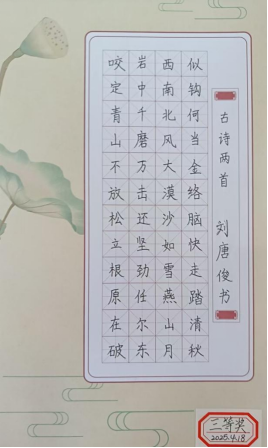 咬定青山不放松立根原在破
岩中千磨万击还坚劲任尔东
西南北风大漠沙如雪燕山月
似钩何当金络脑快走踏清秋
古诗两首 刘唐俊书
三等奖
2025.4.18